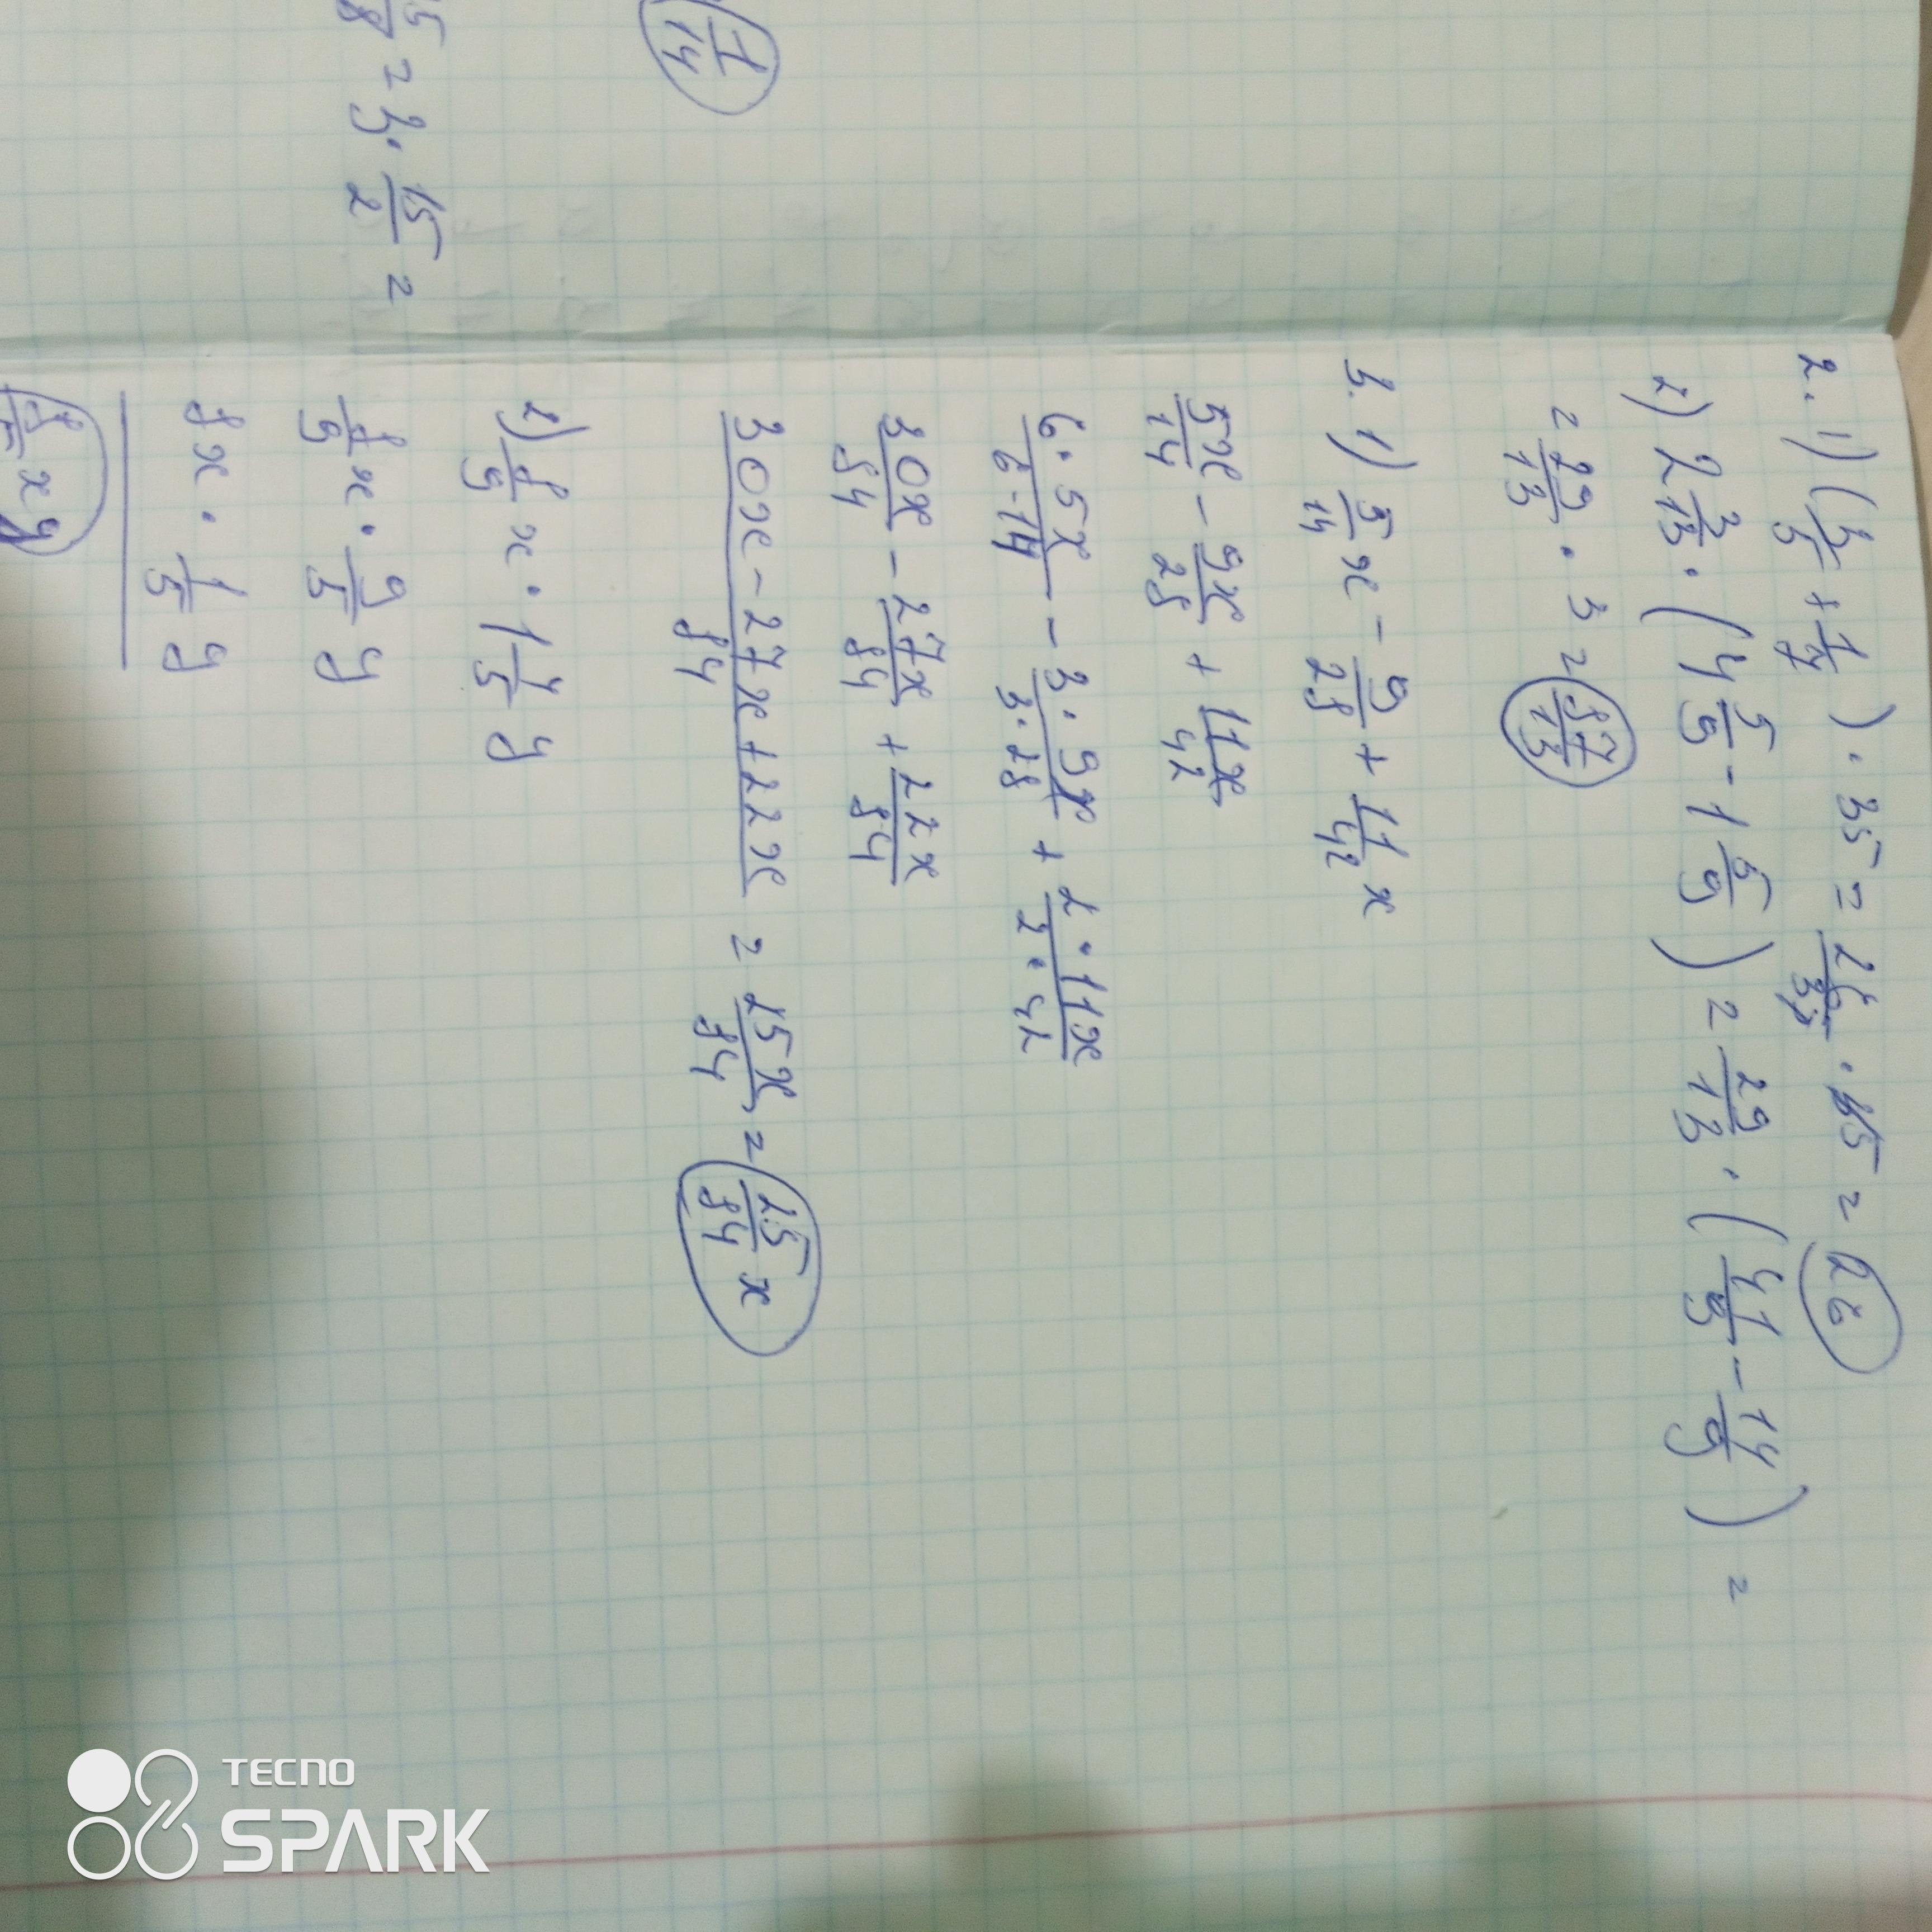 2. 1) (3/5 + 1/7) · 35 = 26/35 · 35 = 26
2) 2 3/13 · (4 5/9 - 1 5/9) = 29/13 · (41/9 - 14/9) =
= 29/13 · 3 = 87/13
3. 1) 5/14 x - 9/28 + 11/42 x
5x/14 - 9x/28 + 11x/42
6·5x/6·14 - 3·9x/3·28 + 2·11x/2·42
30x/84 - 27x/84 + 22x/84
30x-27x+22x/84 = 25x/84 = 25/84 x
2) 8/9 x · 1 4/5 y
8/9 x · 9/5 y
8x · 1/5 y
8/5 xy
1/14
= 3 · 15/2 =
TECNO
SPARK